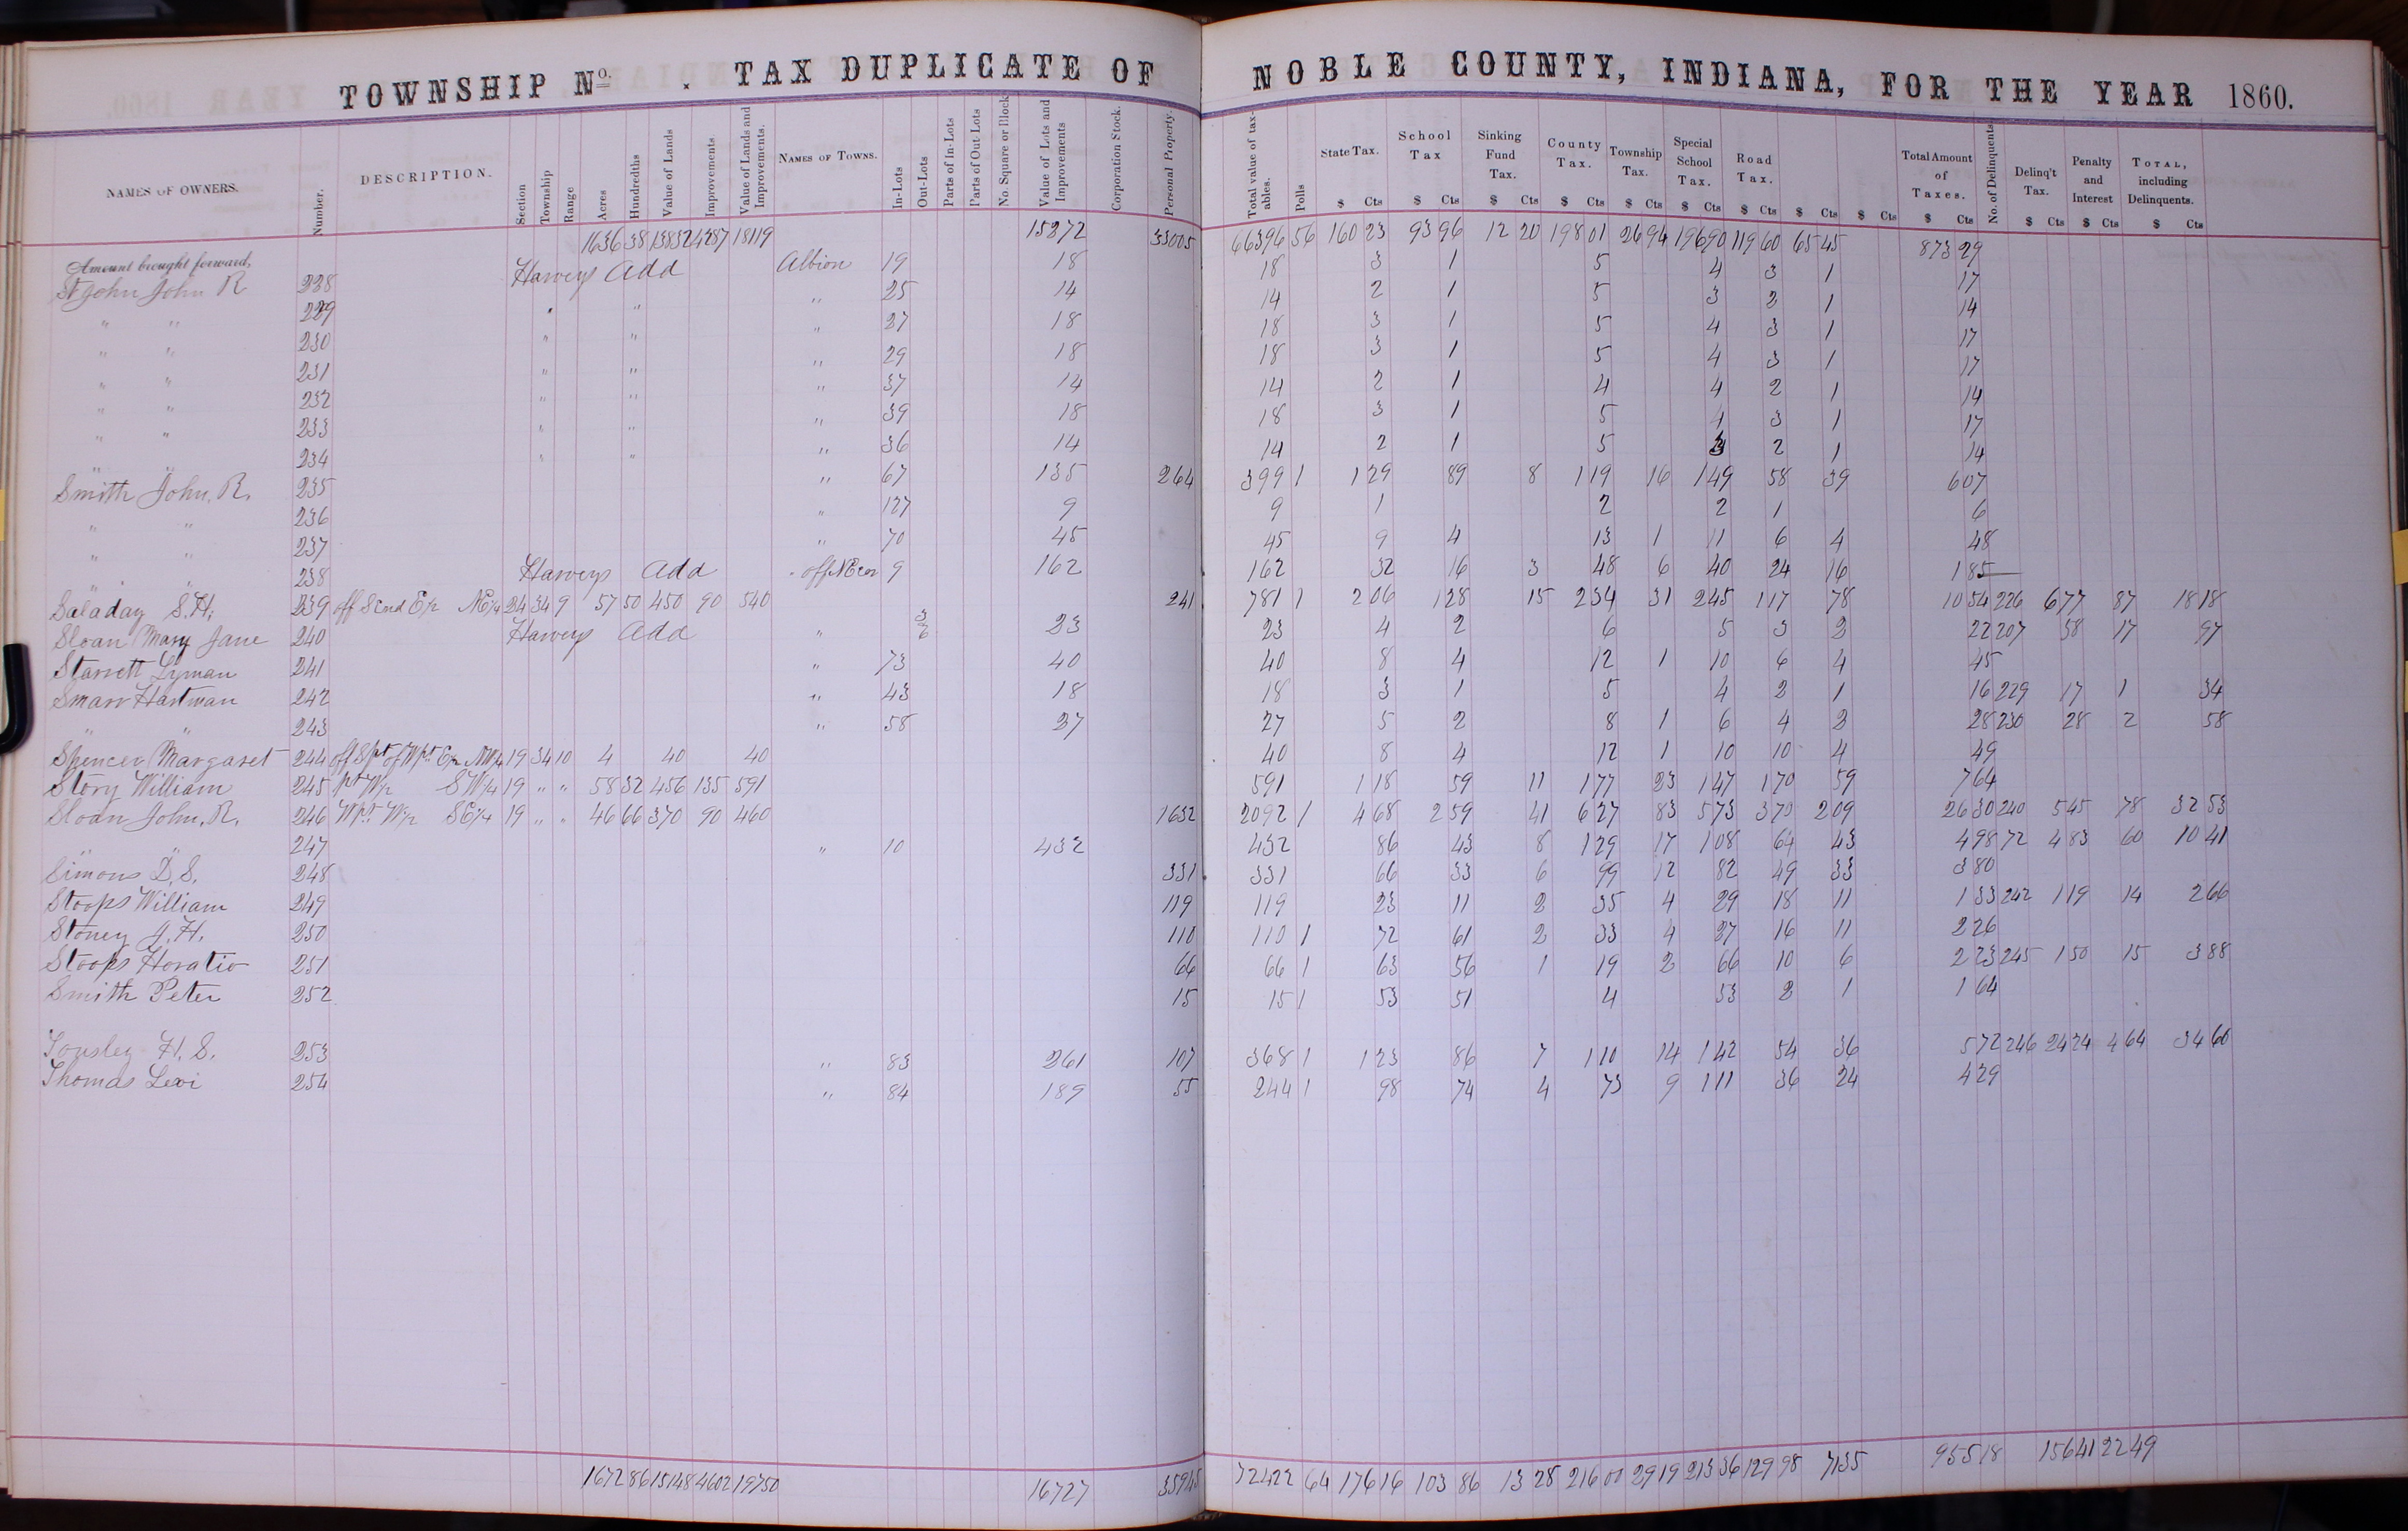 TOWNSHIP No. . TAX DUPLICATE OF NOBLE COUNTY, INDIANA, FOR THE YEAR 1860.
NAMES OF OWNERS. Number. DESCRIPTION. Section Township Range Acres Hundredths Value of Lands Improvements Value of Lands and Improvements. NAMES OF TOWNS. In-Lots Out-Lots Parts of In-Lots Parts of Out Lots No. Square or Block Value of Lots and Improvements Corporation Stock. Personal Property. Total value of taxables. Polls State Tax. School Tax Sinking Fund Tax. County Tax. Township Tax. Special School Tax. Road Tax. Total Amount of Taxes. No. of Delinquents Delinq't Tax. Penalty and Interest TOTAL, including Delinquents.
$ Cts $ Cts $ Cts $ Cts $ Cts $ Cts $ Cts $ Cts $ Cts $ Cts $ Cts $ Cts $ Cts
Amount brought forward, 1636 38 13832 4287 18119 15272 33005 66396 56 160 23 93 96 12 20 198 01 26 94 196 90 119 60 65 45 873 29
St John John R 228 Harveys Add Albion 19 18 18 3 1 5 4 3 1 17
" " 229 " " " 25 14 14 2 1 5 3 2 1 14
" " 230 " " " 27 18 18 3 1 5 4 3 1 17
" " 231 " " " 29 18 18 3 1 5 4 3 1 17
" " 232 " " " 37 14 14 2 1 4 4 2 1 14
" " 233 " " " 39 18 18 3 1 5 4 3 1 17
" " 234 " " " 36 14 14 2 1 5 3 2 1 14
Smith John. R. 235 " 67 135 264 399 1 1 29 89 8 1 19 16 1 49 58 39 6 07
" " 236 " 127 9 9 1 2 2 1 6
" " 237 " 70 45 45 9 4 13 1 11 6 4 48
" " 238 Harveys Add " off NE cor 9 162 162 32 16 3 48 6 40 24 16 1 85
Saladay S. H. 239 off S end E/2 NE/4 24 34 9 57 50 450 90 540 241 781 1 2 06 1 28 15 2 34 31 2 45 1 17 78 10 54 226 6 77 87 18 18
Sloan Mary Jane 240 Harveys Add " 23 23 4 2 6 5 3 2 22 207 58 17 97
Starrett Lyman 241 " 73 40 40 8 4 12 1 10 6 4 45
Smarr Hartman 242 " 43 18 18 3 1 5 4 2 1 16 229 17 1 34
" " 243 " 58 27 27 5 2 8 1 6 4 2 28 230 28 2 58
Spencer Margaret 244 off S pt of W pt E/2 NW/4 19 34 10 4 40 40 40 8 4 12 1 10 10 4 49
Story William 245 pt W/2 SW/4 19 " " 58 32 456 135 591 591 1 18 59 11 1 77 23 1 47 1 70 59 7 64
Sloan John. R. 246 W pt W/2 SE/4 19 " " 46 66 370 90 460 1632 2092 1 4 68 2 59 41 6 27 83 5 73 3 70 2 09 26 30 240 5 45 78 32 53
" " 247 " 10 432 432 86 43 8 1 29 17 1 08 64 43 4 98 72 4 83 60 10 41
Simons D. S. 248 331 331 66 33 6 99 12 82 49 33 3 80
Stoops William 249 119 119 23 11 2 35 4 29 18 11 1 33 242 1 19 14 2 66
Stoney J. H. 250 110 110 1 72 61 2 33 4 27 16 11 2 26
Stoops Horatio 251 66 66 1 63 56 1 19 2 66 10 6 2 23 245 1 50 15 3 88
Smith Peter 252 15 15 1 53 51 4 53 2 1 1 64
Tousley H. S. 253 " 83 261 107 368 1 1 23 86 7 1 10 14 1 42 54 36 5 72 246 24 24 4 64 34 60
Thomas Levi 254 " 84 189 55 244 1 98 74 4 73 9 1 11 36 24 4 29
1672 86 15148 4602 19750 16727 35945 72422 64 176 16 103 86 13 28 216 00 29 19 213 36 129 98 71 35 955 18 156 41 22 49